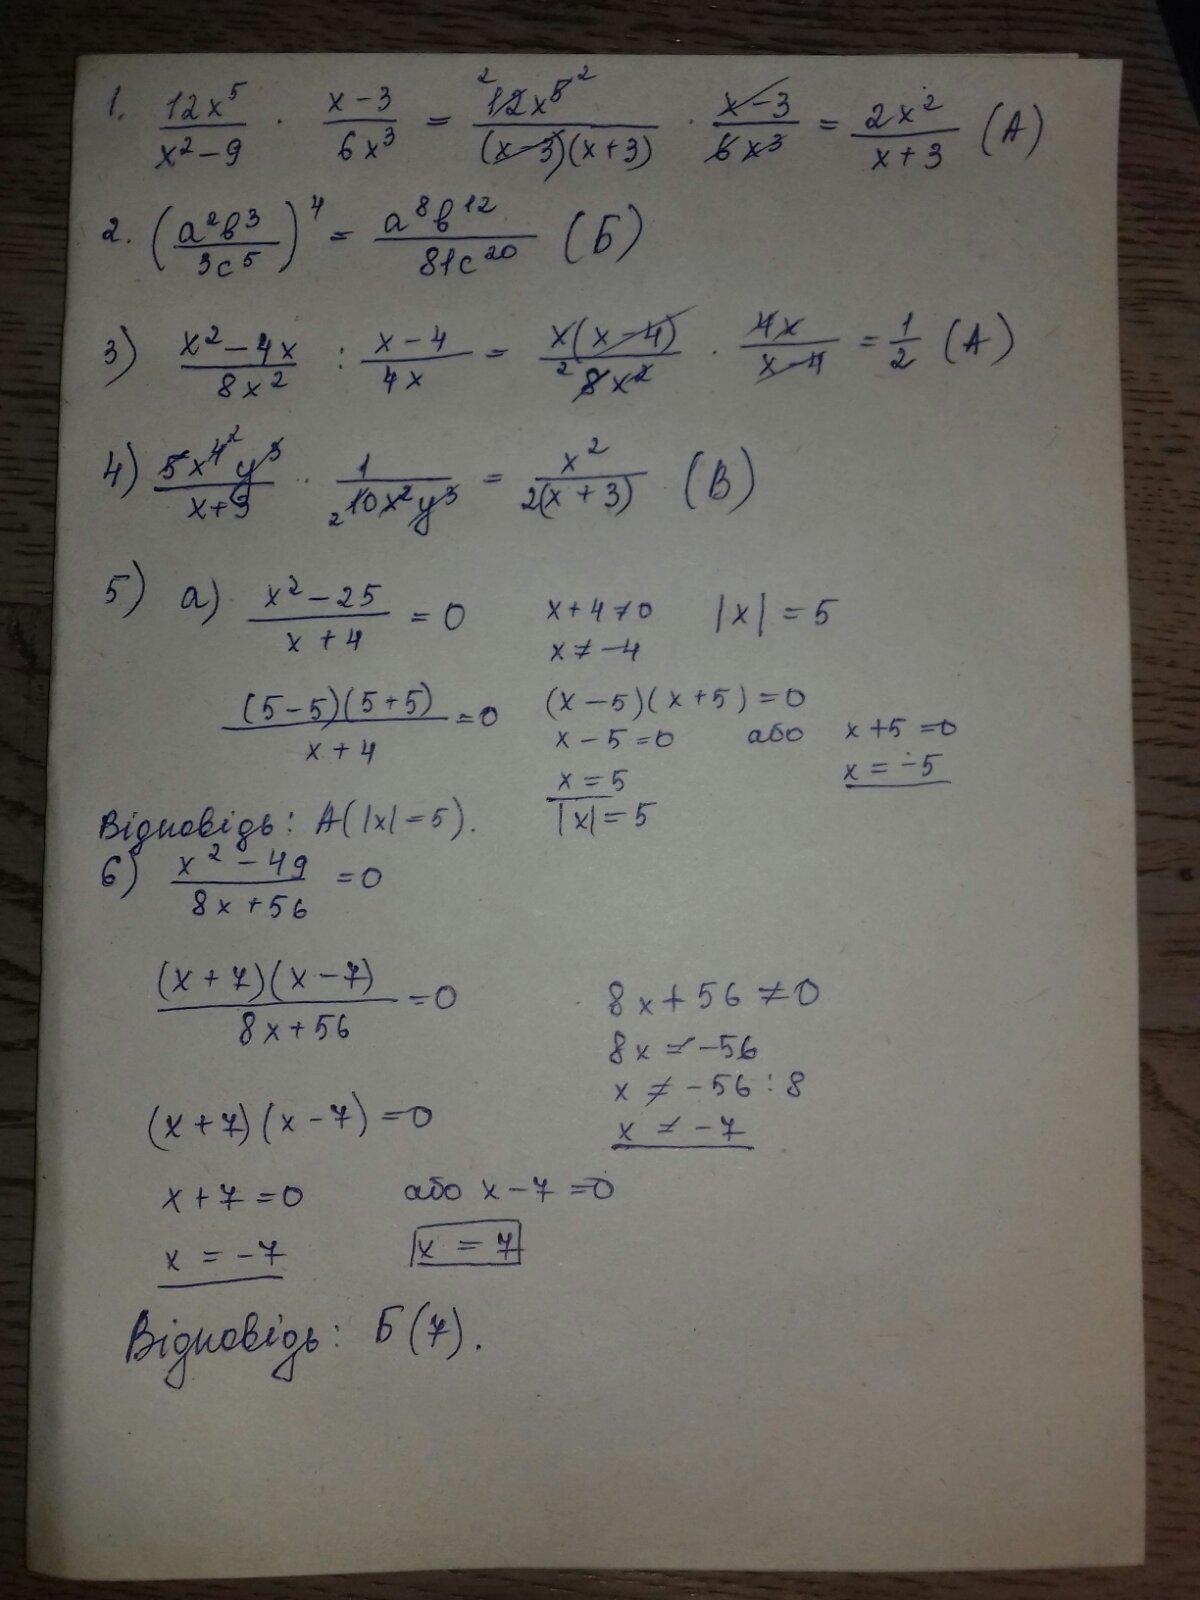 1. 12x⁵/(x²-9) · (x-3)/(6x³) = ²12x⁵ ²/((x-3)(x+3)) · (x-3)/(6x³) = 2x²/(x+3) (А)
2. (a²b³/(3c⁵))⁴ = a⁸b¹²/(81c²⁰) (Б)
3) (x²-4x)/(8x²) : (x-4)/(4x) = x(x-4)/(₂8x²) · 4x/(x-4) = 1/2 (А)
4) 5x⁴ ²y³/(x+3) · 1/(₂10x²y³) = x²/(2(x+3)) (В)
5) а) (x²-25)/(x+4) = 0 x+4≠0 |x| = 5
x≠-4
(5-5)(5+5)/(x+4) = 0 (x-5)(x+5)=0
x-5=0 або x+5=0
x=5 x=-5
Відповідь: А(|x|=5). |x|=5
6) (x²-49)/(8x+56) = 0
(x+7)(x-7)/(8x+56) = 0 8x+56≠0
8x≠-56
x≠-56:8
(x+7)(x-7)=0 x≠-7
x+7=0 або x-7=0
x=-7 x=7
Відповідь: Б(7).